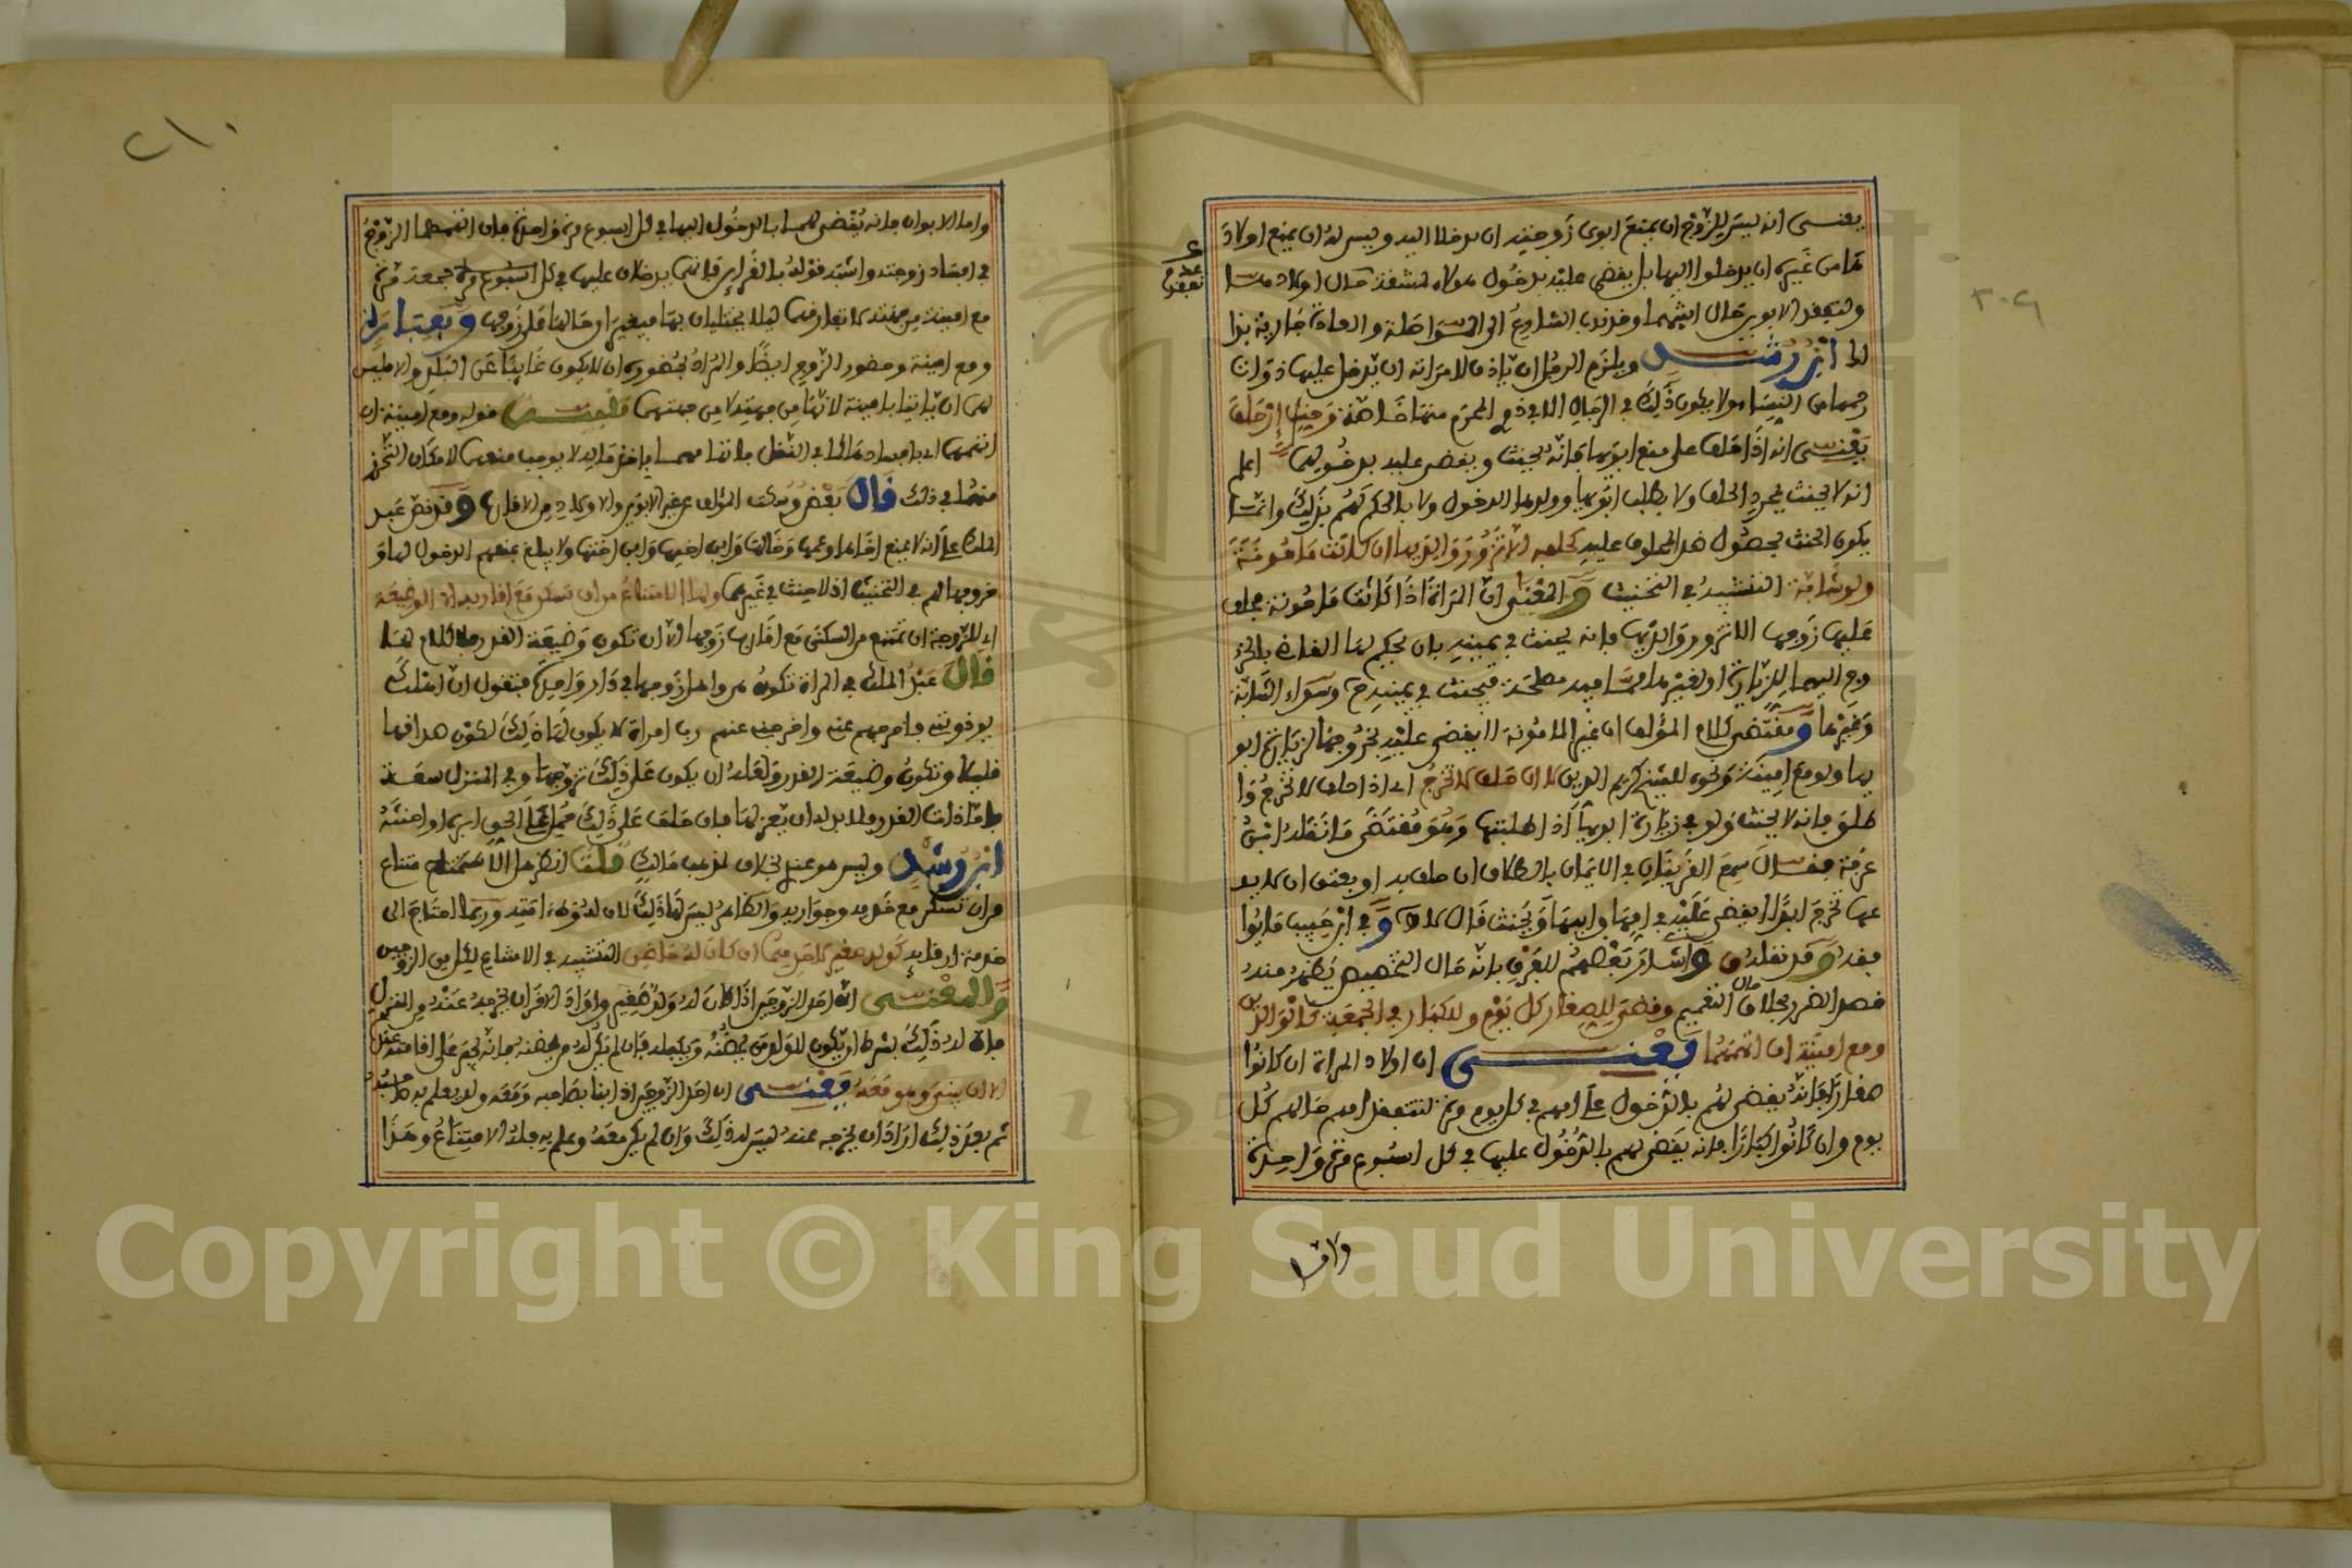 ٢٠٩
يعنى انه ليس للزوج ان يمنع ابوى زوجته ان يدخلا اليه وليس له ان يمنع اولاد
ها من غيره ان يدخلوا اليها بل يقضى عليه بدخول هولاء لشفقة حال اولاد
ولتفقد الابوين حال ابنتهما وقد ندب الشارع الى المواصلة والعادة جارية بذا
ابن رشد ويلزم الرجل ان ياذن لامراته ان يدخل عليها ذوات
رحمها من النساء ولا يكون ذلك في الرجال الا في ذي المحرم منها خاصة وحنث ان حلف
يعنى انه اذا حلف على منع ابويها فانه يحنث ويقضى عليه بدخولهما اعلم
انه لا يحنث بمجرد الحلف ولا بطلب ابويها وولدها الدخول ولا بالحكم لهم بذلك وانما
يكون الحنث بحصول ضد المحلوف عليه كحلفه الا تزور والديها ان كانت مامونة
ولو شابة التشبيه في التحنيث والمعنى ان المراة اذا كانت مامونة حلف
عليها زوجها الا تزور والديها فانه يحنث في يمينه بان يحكم لها القاضي بالخر
وج اليهما للزيارة او لغيرها مما فيه مصلحة فيحنث في يمينه وسواء الشابة
وغيرها ومقتضى كلام المؤلف ان غير المامونة لا يقضى عليه بخروجها لزيارة ابو
يها ولو مع امينة ونحوه للشيخ كريم الدين لا ان حلف لا تخرج اى اذا حلف لا تخرج وا
طلق فانه لا يحنث ولو في زيارة ابويها اذا طلبتها وهو مقتضى ما نقله ابن
عرفة فقال سمع القرينان في الايمان بالطلاق ان حلف به او بعتق ان لا يد
عها تخرج ابدا ايقضى عليه في امها وابيها ويحنث قال لا وفي ابن حبيب
فقد نقله ق واشار بعضهم للفرق بانه حال التخصيص يظهر منه
قصد الضرر بخلاف حال التعميم وقضى للصغار كل يوم وللكبار في الجمعة كالوالدين
ومع امينة ان اتهمهما يعنى ان اولاد المراة ان كانوا
صغارا فانه يقضى لهم بالدخول على امهم في كل يوم مرة لتتفقد امهم حالهم كل
يوم وان كانوا كبارا فانه يقضى لهم بالدخول عليها في كل اسبوع مرة واحدة
واما
٢١٠
واما الابوان فانه يقضى لهما بالدخول اليها في كل اسبوع مرة واحدة فان اتهمهما الزوج
في افساد زوجته واشبه قوله بالقرائن فانهما يدخلان عليها في كل جمعة مرة
مع امينة من جهته لا تفارقهما ليلا يختليان بها فيغيرا حالها على زوجها
ومع امينة وحضور الزوج ايضا والمراد بحضوره ان لا يكون غائبا عن البلد والا فليس
لهما ان ياتيا بامينة لانها من جهته لا من جهتهما قوله ومع امينة ان
اتهمهما اى بافسادها
منهما في ذلك قال بعض وسكت المؤلف عن غير الابوين والاولاد من الاقارب وقد نص عبد
الملك على انه لا يمنع اخاها وعمها وخالها وابن اخيها وابن اختها ولا يبلغ بمنعهم الدخول لها و
خروجها لهم في التحنيث اذ لا حنث في غيرهما ولها الامتناع من ان تسكن مع اقاربه الا الوضيعة
اى للزوجة ان تمتنع من السكنى مع اقارب زوجها الا ان تكون وضيعة القدر فلا كلام لها
قال عبد الملك في المراة تكون هي واهل زوجها في دار واحدة فتقول ان اهلك
يوذوننى فاخرجهم عنى واخرجنى عنهم رب امراة لا يكون لها ذلك لكون صداقها
قليلا وتكون وضيعة القدر ولعله ان يكون على ذلك تزوجها وفي المنزل سعة
فاما ذات القدر فلا بد له ان يعزلها فان حلف على ذلك حمل على الحق ابرها او احنثه
ابن رشد وليس هو عندى بخلاف لمذهب مالك قلت انظر هل الامتناع
من ان تسكن مع خدمه وجواريه والظاهر ليس لها ذلك لان له وطء امته وربما احتاج الى
خدمة ارقايه كولد صغير لاحدهما ان كان له حاضن التشبيه في الامتناع لكل من الزوجين
والمعنى ان احد الزوجين اذا كان له ولد صغير واراد الاخر ان يخرجه عنه من المنزل
فان له ذلك بشرط ان يكون للولد من يحضنه ويكفله فان لم يكن له من يحضنه
الا ان يبنى وهو معه يعنى ان احد الزوجين اذا بنا بصاحبه ومعه ولد يعلم به صاحبه
ثم بعد ذلك اراد ان يخرجه عنه ليس له ذلك وان لم يكن معه وعلم به فله الامتناع وهذا
Copyright © King Saud University